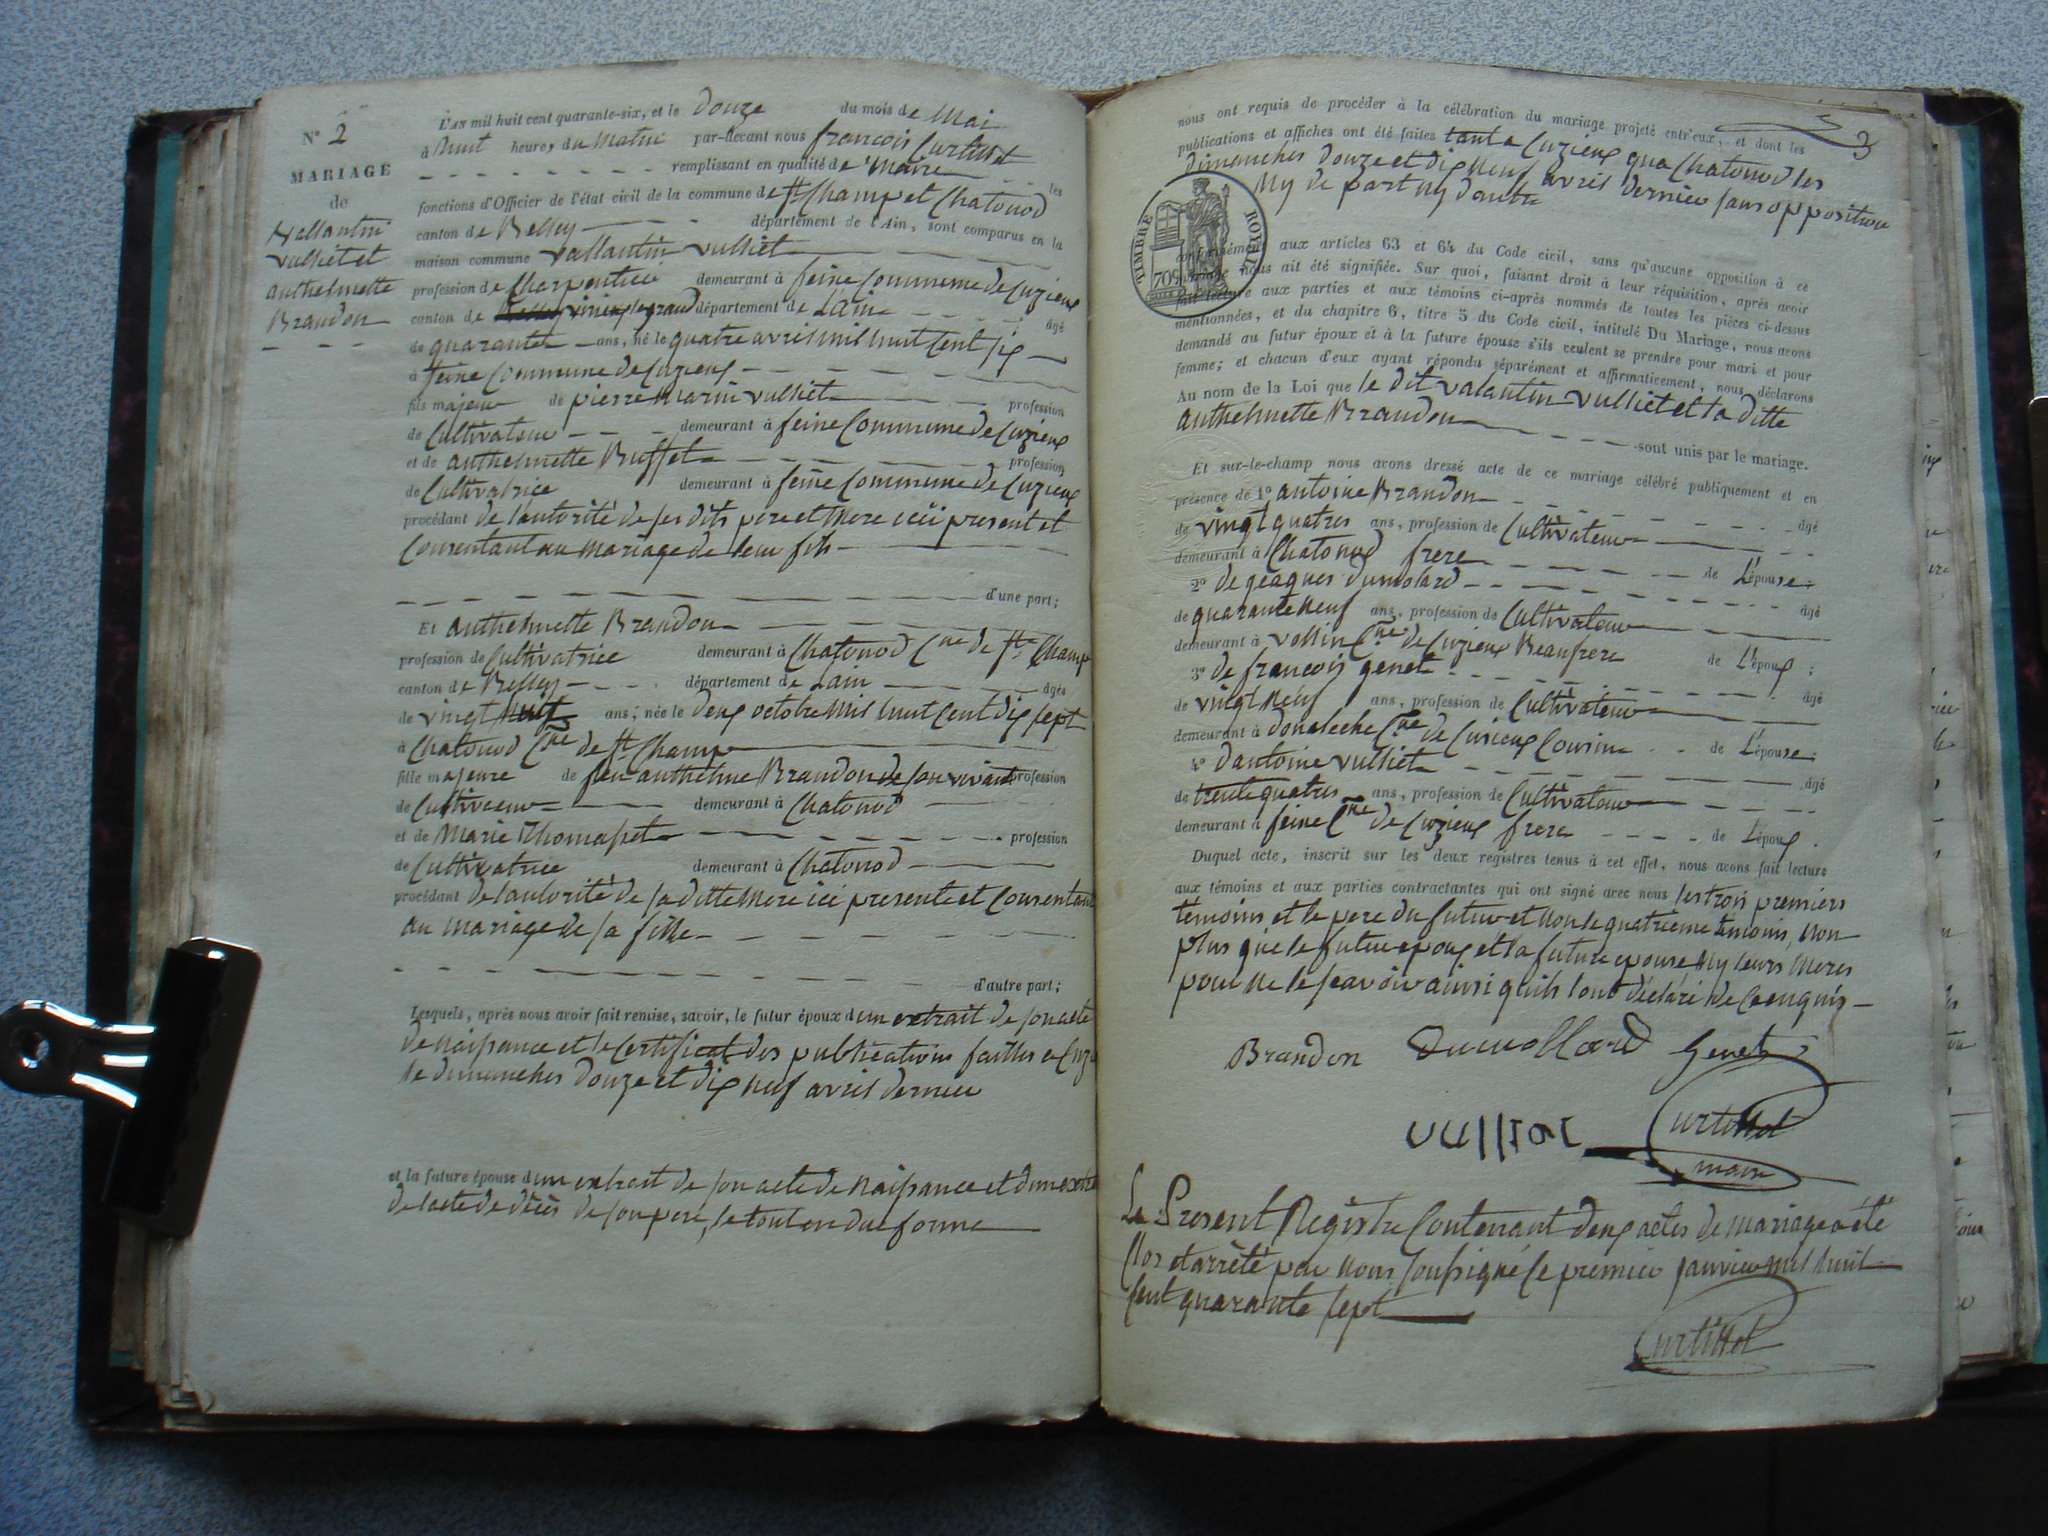 N° 2
MARIAGE
de
Vallantin
vulliet et
anthelmette
Brandon
L'AN mil huit cent quarante-six, et le douze du mois de Mai
à huit heures du matin par-devant nous françois Curtillet
remplissant en qualité de Maire les
fonctions d'Officier de l'état civil de la commune de St Champ et Chatonod
canton de Belley département de l'Ain, sont comparus en la
maison commune vallantin vulliet
profession de Charpentier demeurant à feine Commune de Cuzieux
canton de virieux le grand département de Lain âgé
de quarante ans, né le quatre avril mil huit Cent six
à feine Commune de Cuzieux
fils majeur de pierre Marin vulliet profession
de Cultivateur demeurant à feine Commune de Cuzieux
et de anthelmette Buffet profession
de Cultivatrice demeurant à feine Commune de Cuzieux
procédant de lautorité de ses dits pere et Mere icii present et
Consentant au Mariage de leur fils
d'une part;
Et anthelmette Brandon
profession de Cultivatrice demeurant à Chatonod Cne de St Champ
canton de Belley département de Lain âgée
de vingt huit ans; née le deux octobre Mil huit Cent dix sept
à Chatonod Cne de St Champ
fille majeure de feu anthelme Brandon de son vivant profession
de Cultiveur demeurant à Chatonod
et de Marie Thomasset profession
de Cultivatrice demeurant à Chatonod
procédant de lautorité de sa ditte Mere ici presente et Consentant
au Mariage de sa fille
d'autre part;
Lesquels, après nous avoir fait remise, savoir, le futur époux dun extrait de son acte
de Naissance et le Certificat des publications faittes a Cuz
le dimanches douze et dix neuf avril dernier
et la future épouse dun extrait de son acte de Naissance et dun
de lacte de décès de son pere, le tout en due forme
3
nous ont requis de procéder à la célébration du mariage projeté entr'eux, et dont les
publications et affiches ont été faites tant a Cuzieux qua Chatonod les
dimanches douze et dix Neuf avril dernier sans opposition
Ny de part Ny dautre
TIMBRE ROYAL
70c
conformément aux articles 63 et 64 du Code civil, sans qu'aucune opposition à ce
mariage nous ait été signifiée. Sur quoi, faisant droit à leur réquisition, après avoir
fait lecture aux parties et aux témoins ci-après nommés de toutes les pièces ci-dessus
mentionnées, et du chapitre 6, titre 5 du Code civil, intitulé Du Mariage, nous avons
demandé au futur époux et à la future épouse s'ils veulent se prendre pour mari et pour
femme; et chacun d'eux ayant répondu séparément et affirmativement, nous déclarons
Au nom de la Loi que le dit valantin vulliet et la ditte
anthelmette Brandon
sont unis par le mariage.
Et sur-le-champ nous avons dressé acte de ce mariage célébré publiquement et en
présence de 1° antoine Brandon âgé
de vingt quatres ans, profession de Cultivateur
demeurant à Chatonod frere de L'épouse;
2° de geaques dumolard âgé
de quarante Neuf ans, profession de Cultivateur
demeurant à vollin Cne de Cuzieux Beaufrere de L'époux;
3° de françois genet âgé
de vingt Neuf ans, profession de Cultivateur
demeurant à donaleche Cne de Cusieux Cousin de L'épouse;
4° dantoine vulliet âgé
de trente quatres ans, profession de Cultivateur
demeurant à feine Cne de Cuzieux frere de L'époux.
Duquel acte, inscrit sur les deux registres tenus à cet effet, nous avons fait lecture
aux témoins et aux parties contractantes qui ont signé avec nous les trois premiers
témoins et le pere du futur et Non le quatrieme témoins, Non
plus que le futur epoux et la future epouse Ny leurs Meres
pour Ne le scavoir ainsi quils lont déclaré de Ce enquis
Brandon Dumollard Genet
vulliet Curtillet
maire
Le Present Registre Contenant deux actes de mariage a été
Clos et arrêté par Nous soussigné le premier janvier mil huit
Cent quarante sept
Curtillet